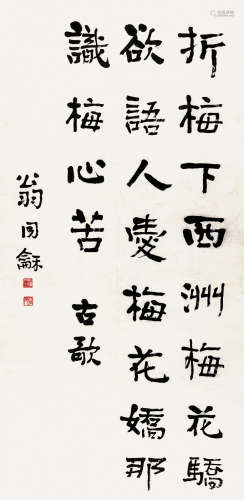 折梅下西洲梅花驕
欲語人愛梅花嬌那
識梅心苦 古歌
翁同龢